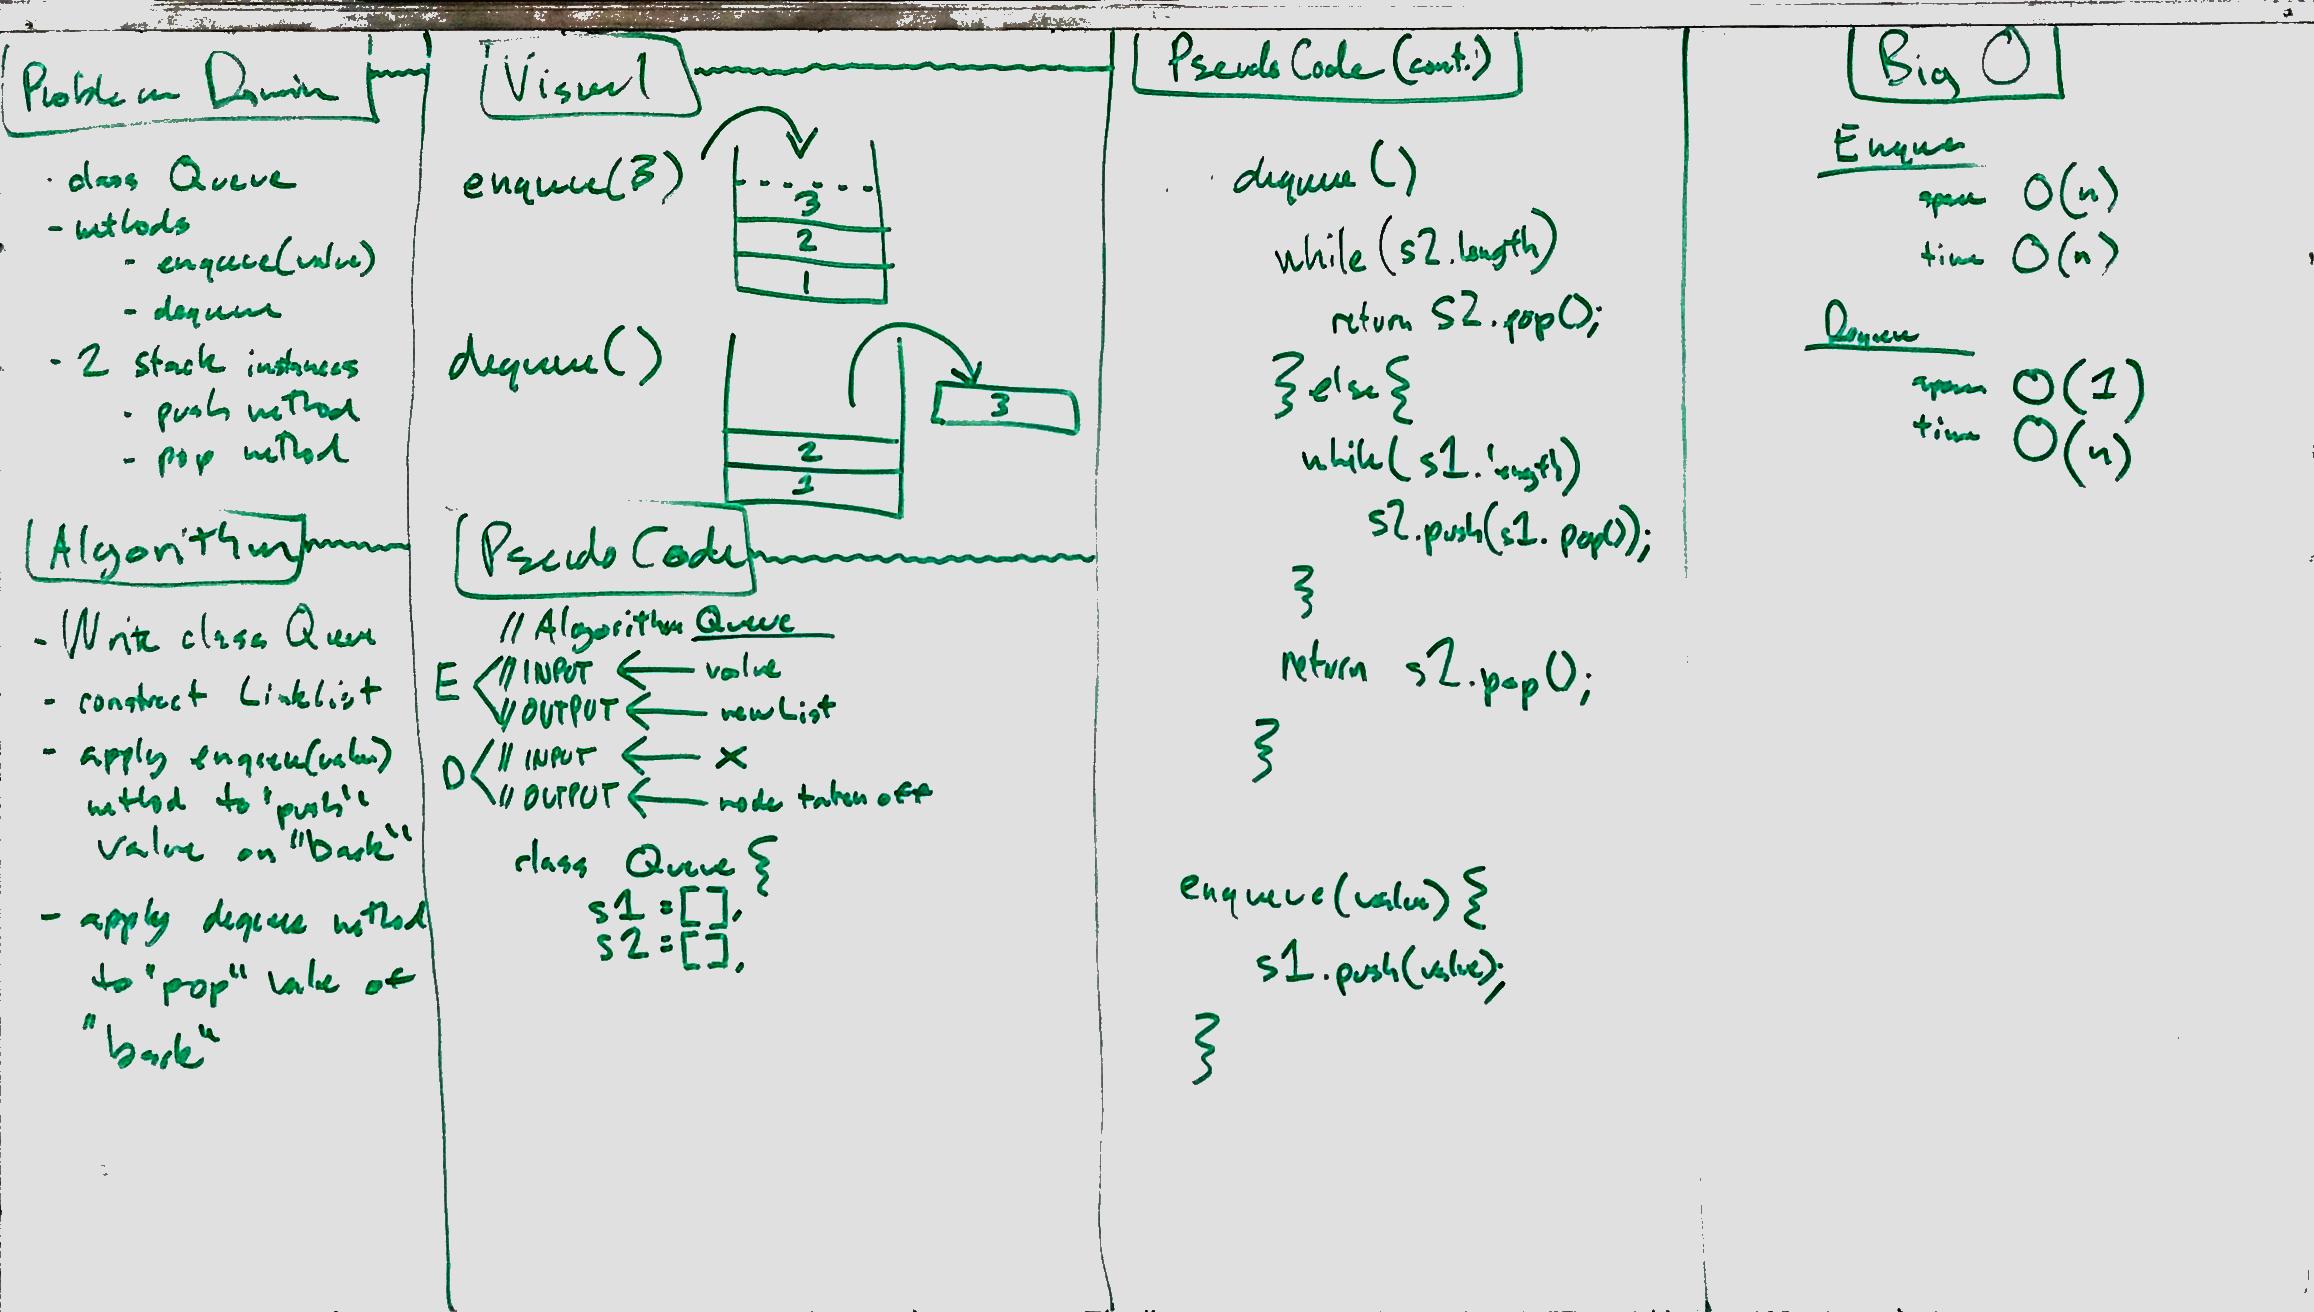 Problem Domain
· class Queue
- methods
- enqueue(value)
- dequeue
- 2 stack instances
- push method
- pop method
Algorithm
- Write class Queue
- construct Linklist
- apply enqueue(value)
method to "push"
value on "back"
- apply dequeue method
to "pop" value of
"back"
Visual
enqueue(3)
3
2
1
dequeue()
3
2
1
Pseudo Code
// Algorithm Queue
E // INPUT ← value
// OUTPUT ← new List
D // INPUT ← x
// OUTPUT ← node taken off
class Queue {
s1 = [],
s2 = [],
Pseudo Code (cont.)
dequeue()
while (s2.length)
return s2.pop();
} else {
while (s1.length)
s2.push(s1.pop());
}
return s2.pop();
}
enqueue(value) {
s1.push(value);
}
Big O
Enqueue
space O(n)
time O(n)
Dequeue
space O(1)
time O(n)